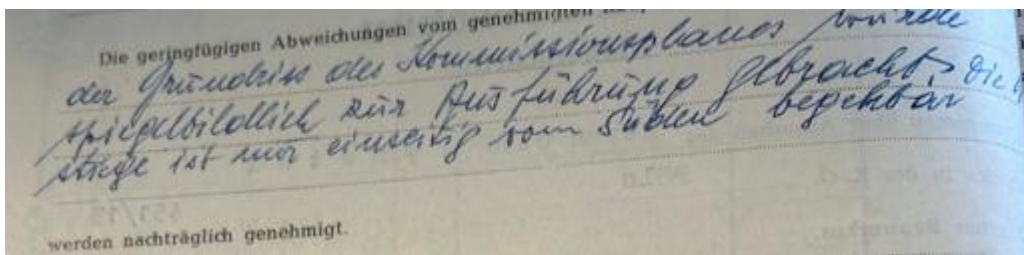 Die geringfügigen Abweichungen vom genehmigten
der Grundriss des Kommissionsplanes wurde
spiegelbildlich zur Ausführung gebracht. Die
stiege ist nur einseitig vom Süden begehbar
werden nachträglich genehmigt.